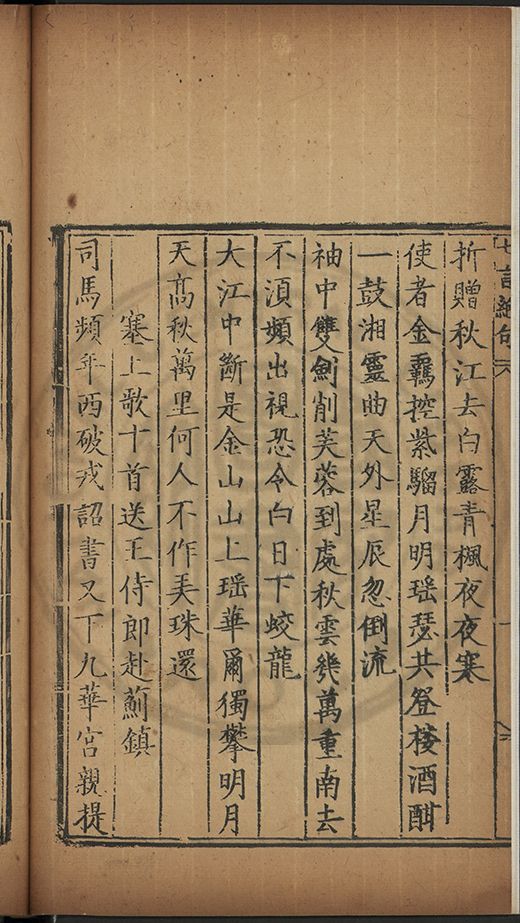 七言絶句六
折贈秋江去白露青楓夜夜寒
使者金羈控紫騮月明瑶瑟共登楼酒酣
一鼓湘靈曲天外星辰忽倒流
袖中雙劍削芙蓉到處秋雲幾萬重南去
不湏頻出視恐令白日下蛟龍
大江中斷是金山山上瑶華爾獨攀明月
天高秋萬里何人不作美珠還
塞上歌十首送王侍郎赴薊鎮
司馬頻年西破戎詔書又下九華宮親提